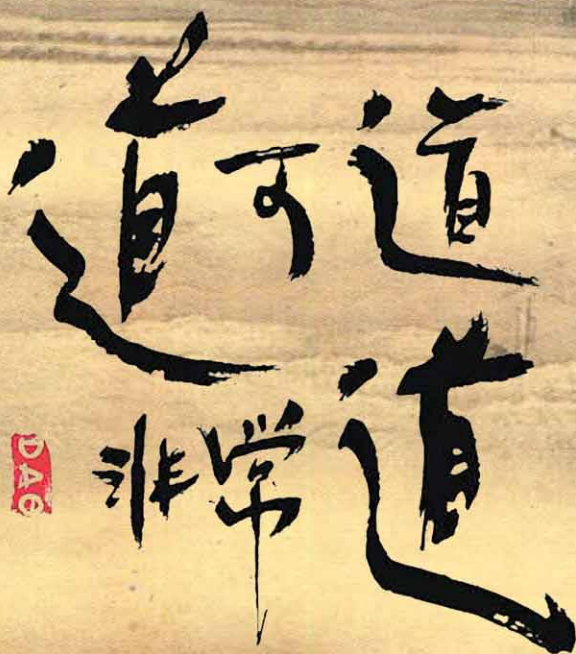 道可道
非常道
DAO